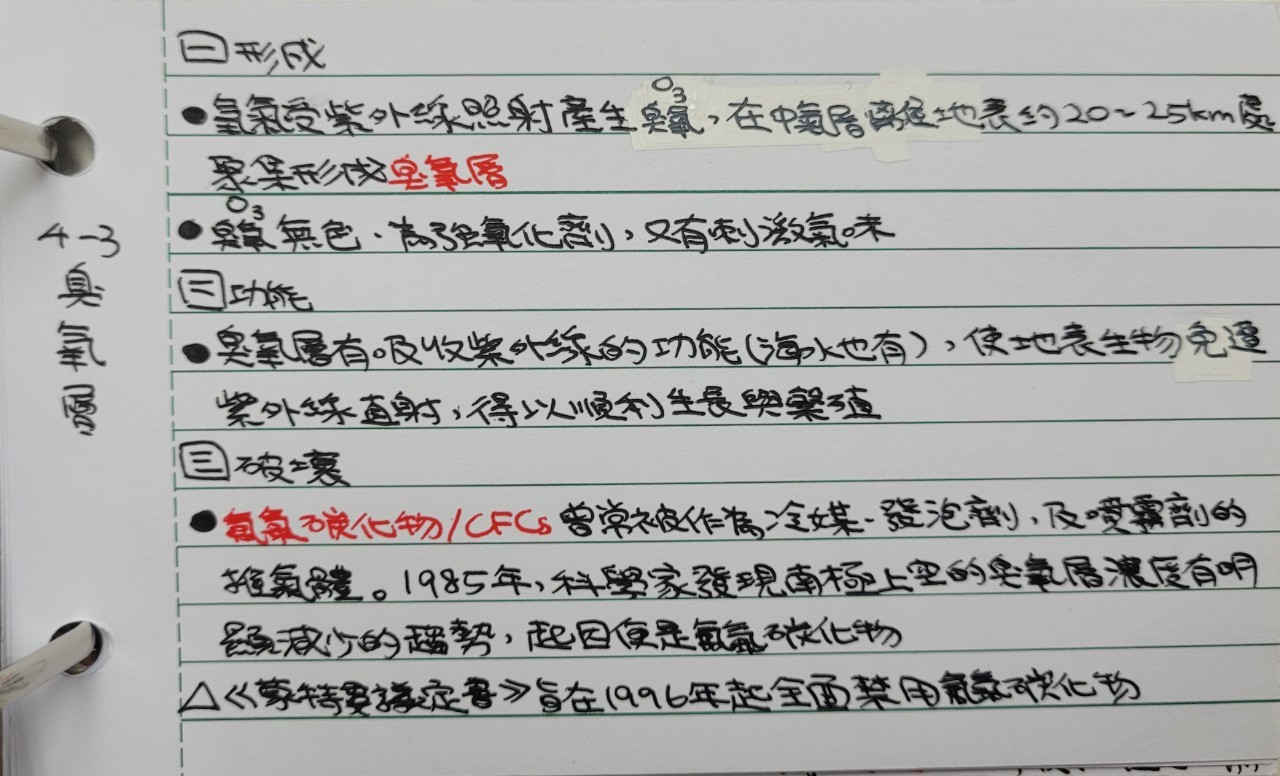 4-3
臭氧層
㊀形成
●氧氣受紫外線照射產生臭氧，在中氣層離地表約20~25km處
O3
聚集形成臭氧層
O3
●臭氧無色、為強氧化劑，又有刺激氣味
㊁功能
●臭氧層有吸收紫外線的功能(海水也有)，使地表生物免遭
紫外線直射，得以順利生長與繁殖
㊂破壞
●氟氯碳化物/CFCs曾常被作為冷媒、發泡劑，及噴霧劑的
推氣體。1985年，科學家發現南極上空的臭氧層濃度有明
顯減少的趨勢，起因便是氟氯碳化物
△《蒙特婁議定書》旨在1996年起全面禁用氟氯碳化物